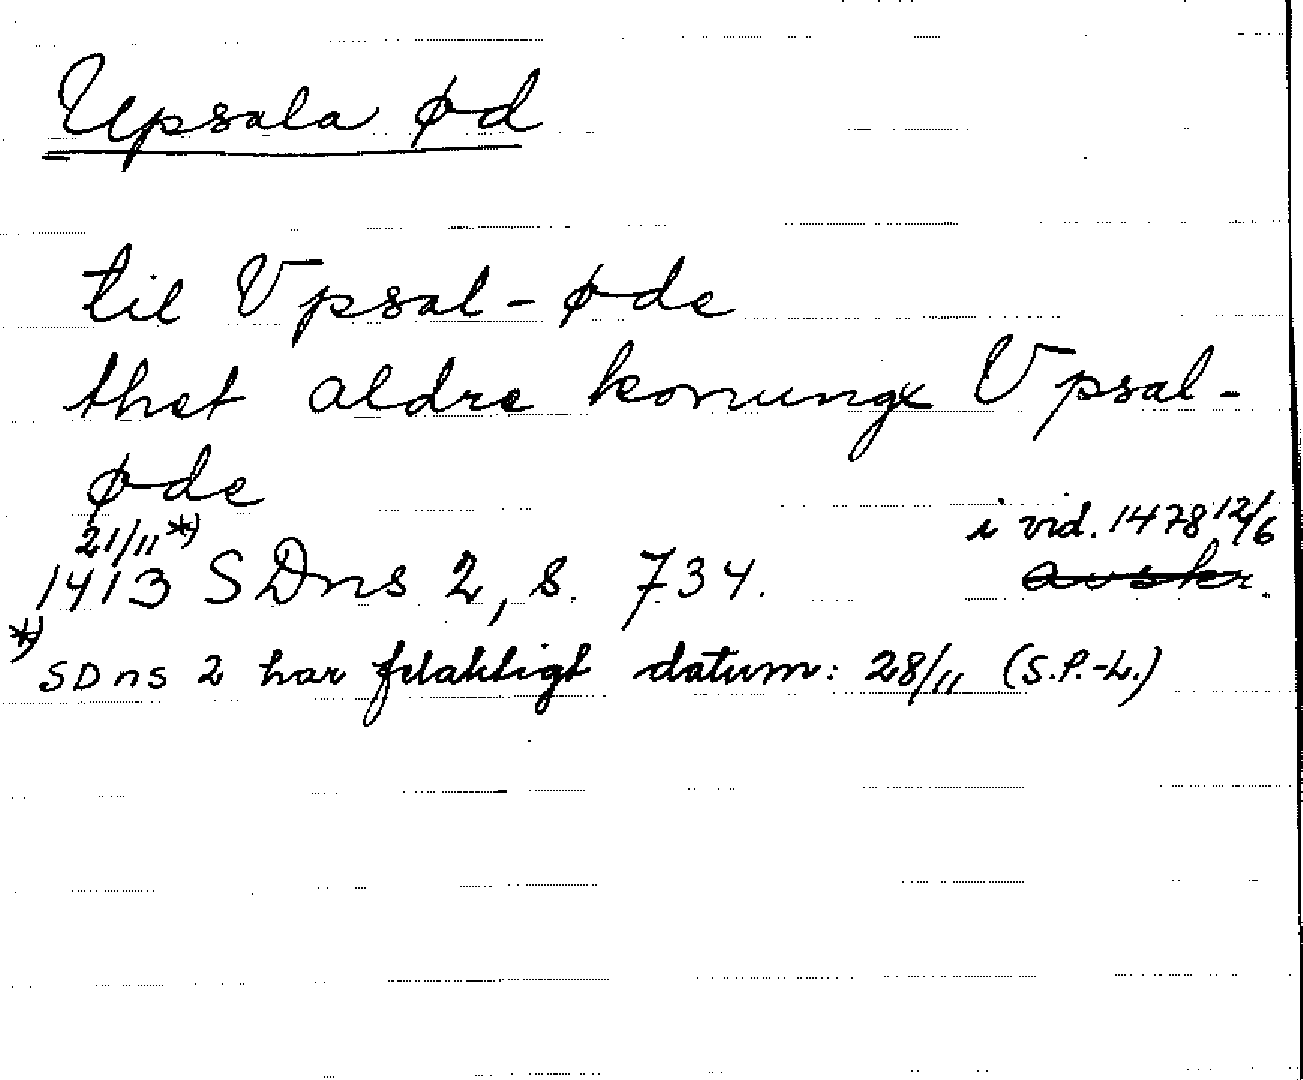 Upsala ød
til Vpsal-øde
thet aldre konungx Vpsal-
øde
21/11 *) i vid. 1478 12/6
1413 SDns 2, s. 734. avskr.
*) SDns 2 har felaktigt datum: 28/11 (S.P.-L.)